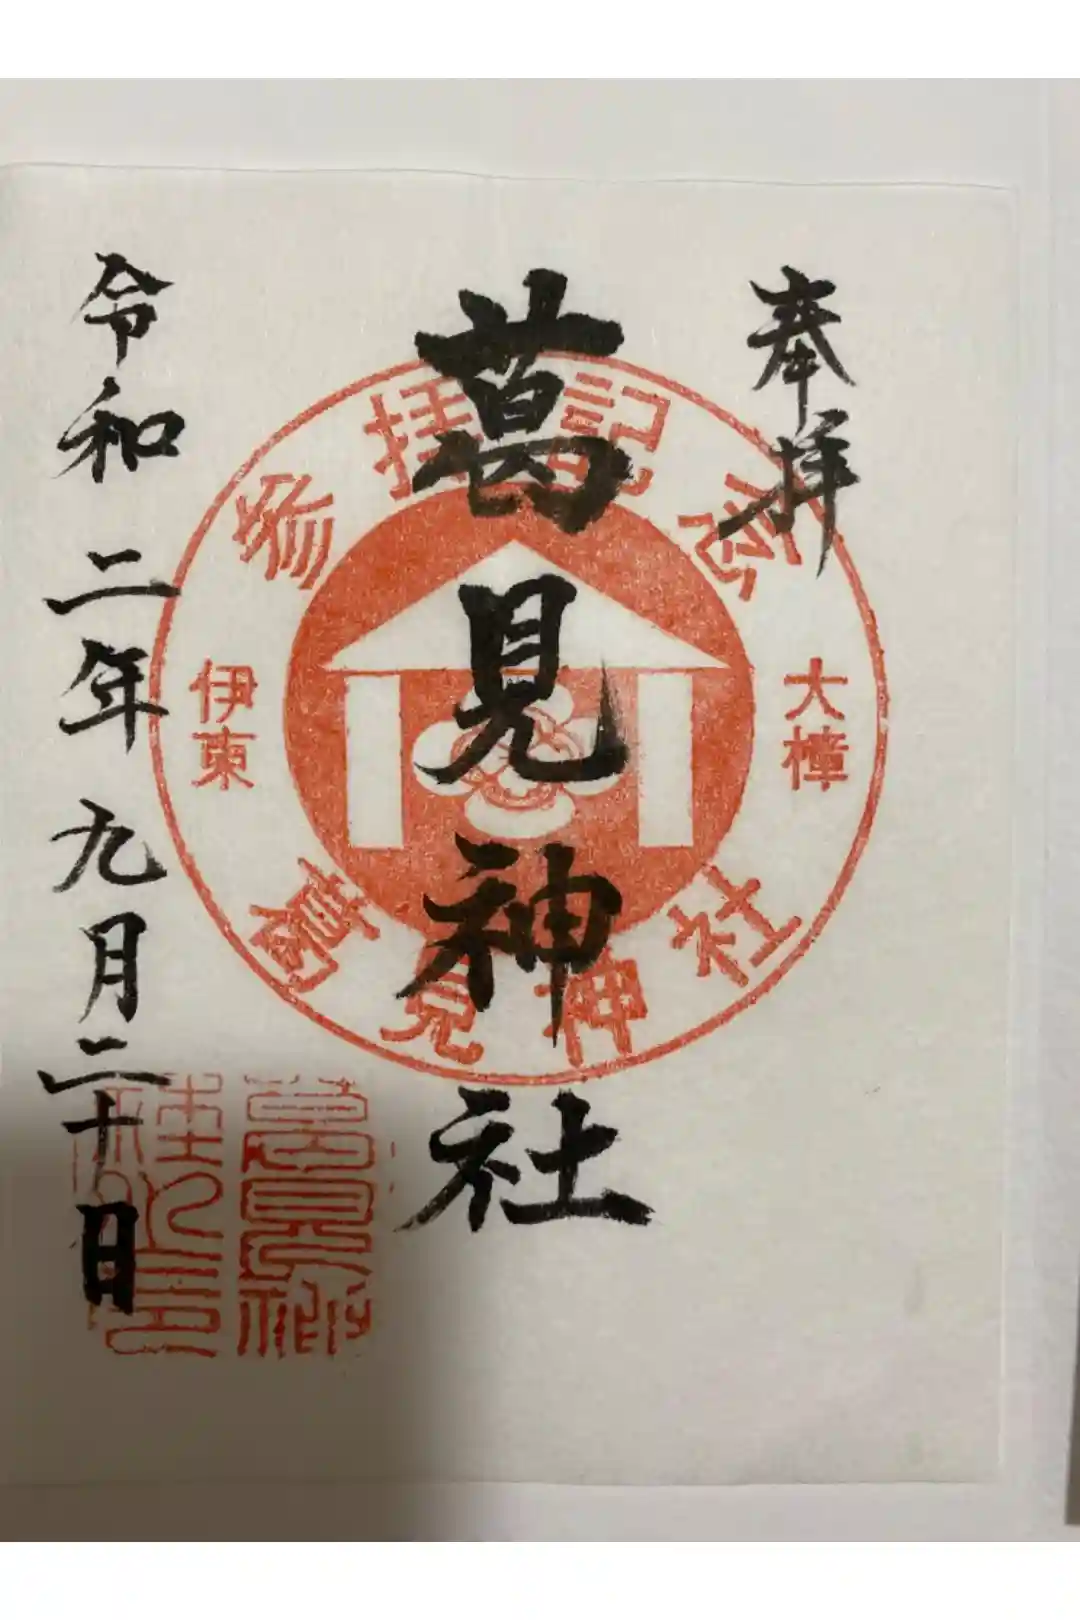 奉拝
葛見神社
令和二年九月二十日
参拝記念
大樟
伊東
葛見神社
葛見神社之印